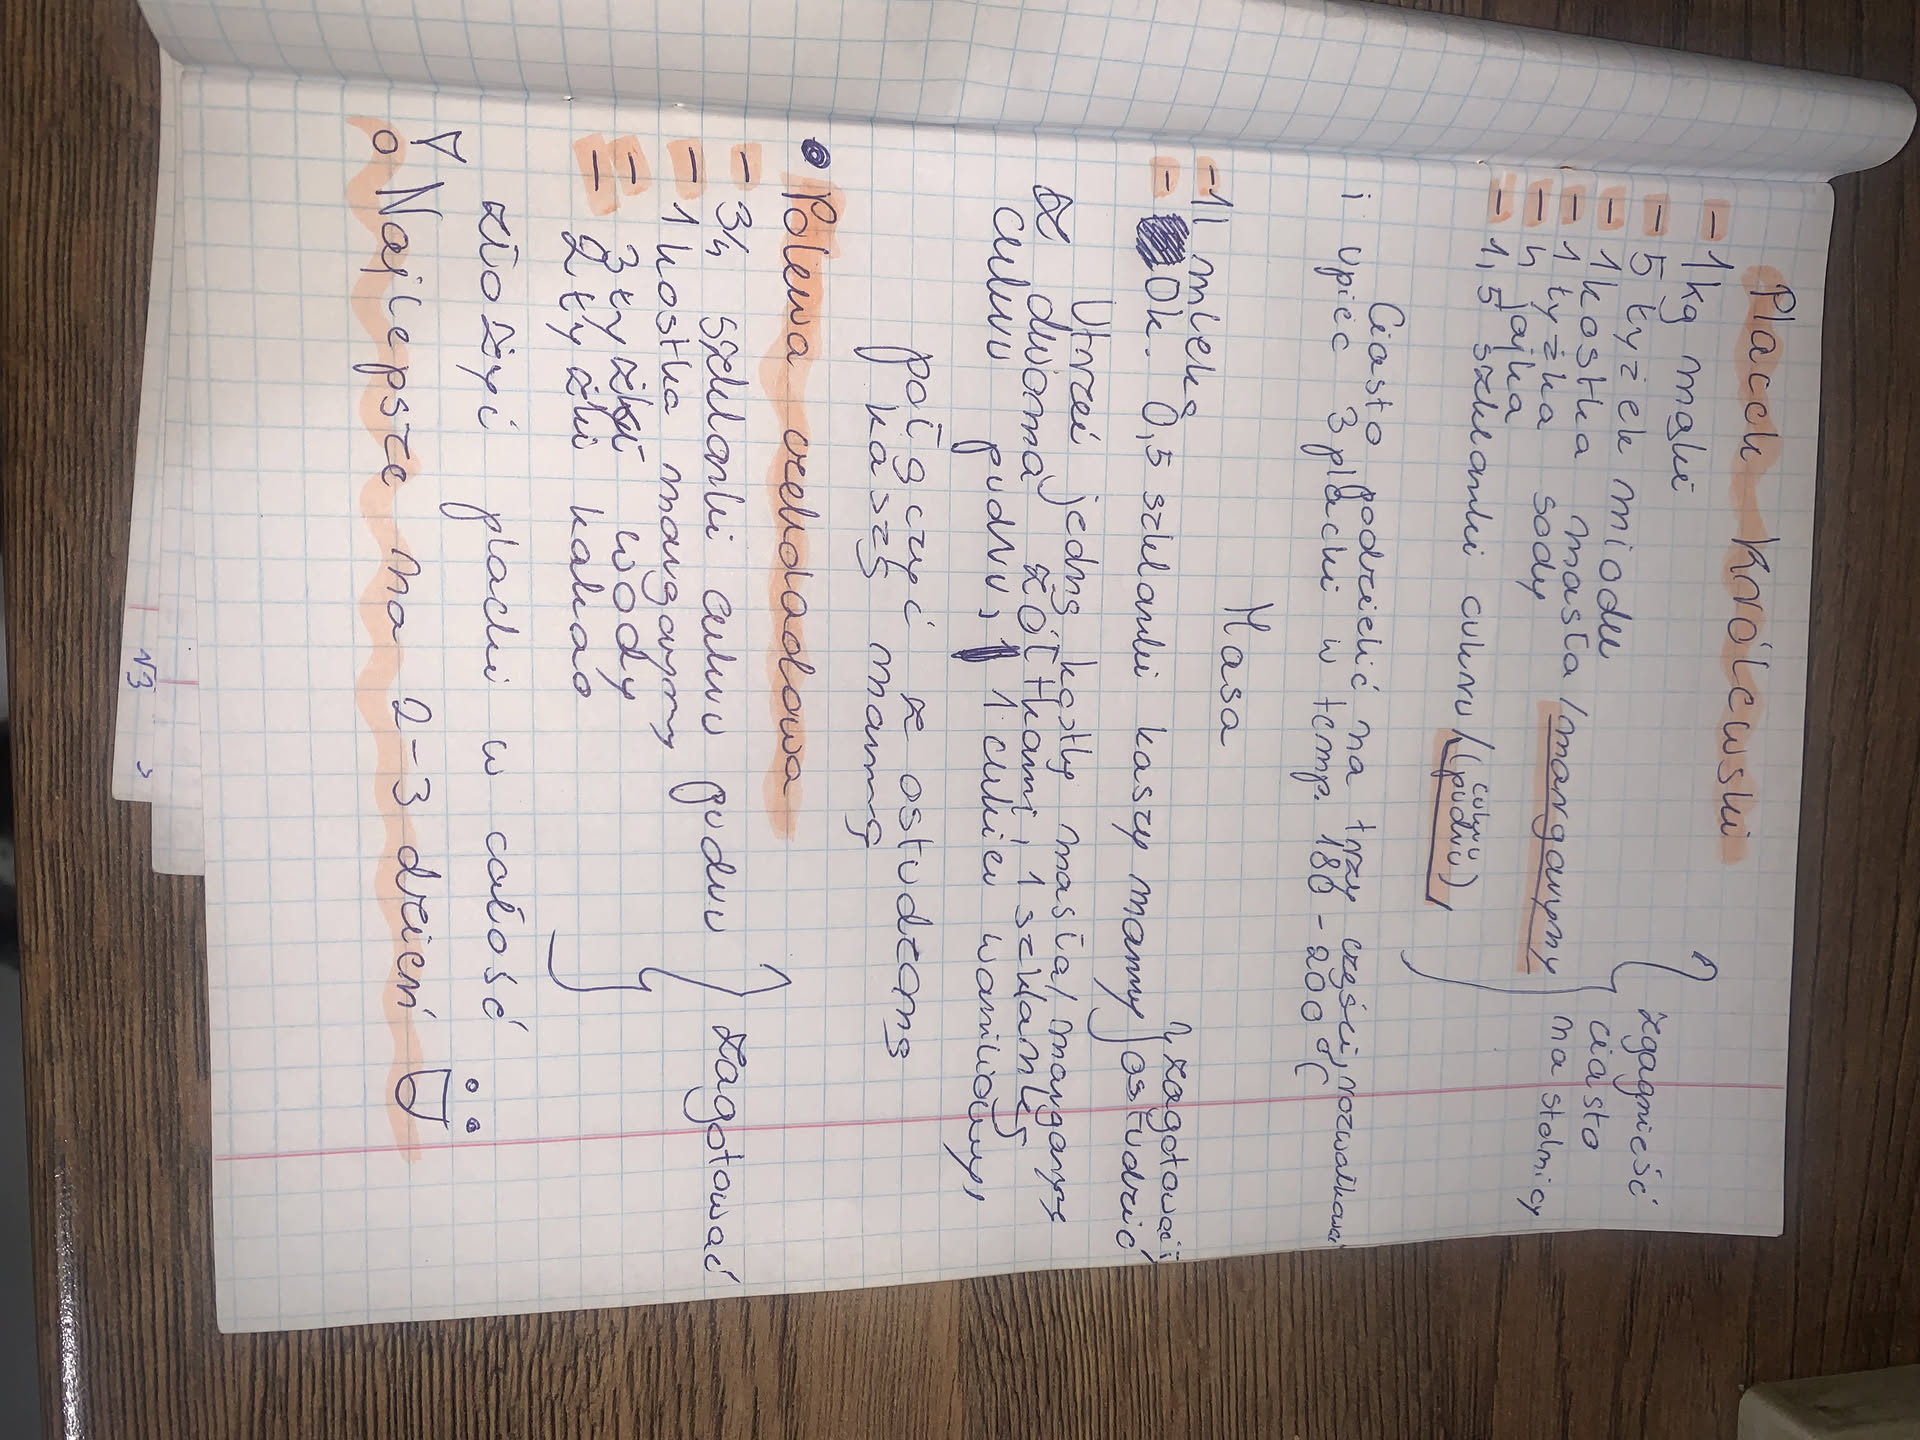 Placek Królewski
- 1kg mąki
- 5 łyżek miodu
- 1 kostka masła / margaryny
- 1 łyżka sody
- 4 jajka
- 1,5 szklanki cukru / (cukru pudru)
zgagnieść
ciasto
na stolnicy
Ciasto podzielić na trzy części, rozwałkować
i upiec 3 placki w temp. 180 - 200°C
Masa
- 1l mleka
- Ok. 0,5 szklanki kaszy manny
zagotować i
ostudzić
Utrzeć jedną kostkę masła / margaryny
z dwoma żółtkami, 1 szklankę
cukru pudru, 1 cukier waniliowy,
połączyć z ostudzoną
kaszą manną
• Polewa czekoladowa
- 3/4 szklanki cukru pudru
- 1 kostka margaryny
- 3 łyżki wody
- 2 łyżki kakao
zagotować
złożyć placki w całość
Najlepsze na 2-3 dzień
√3